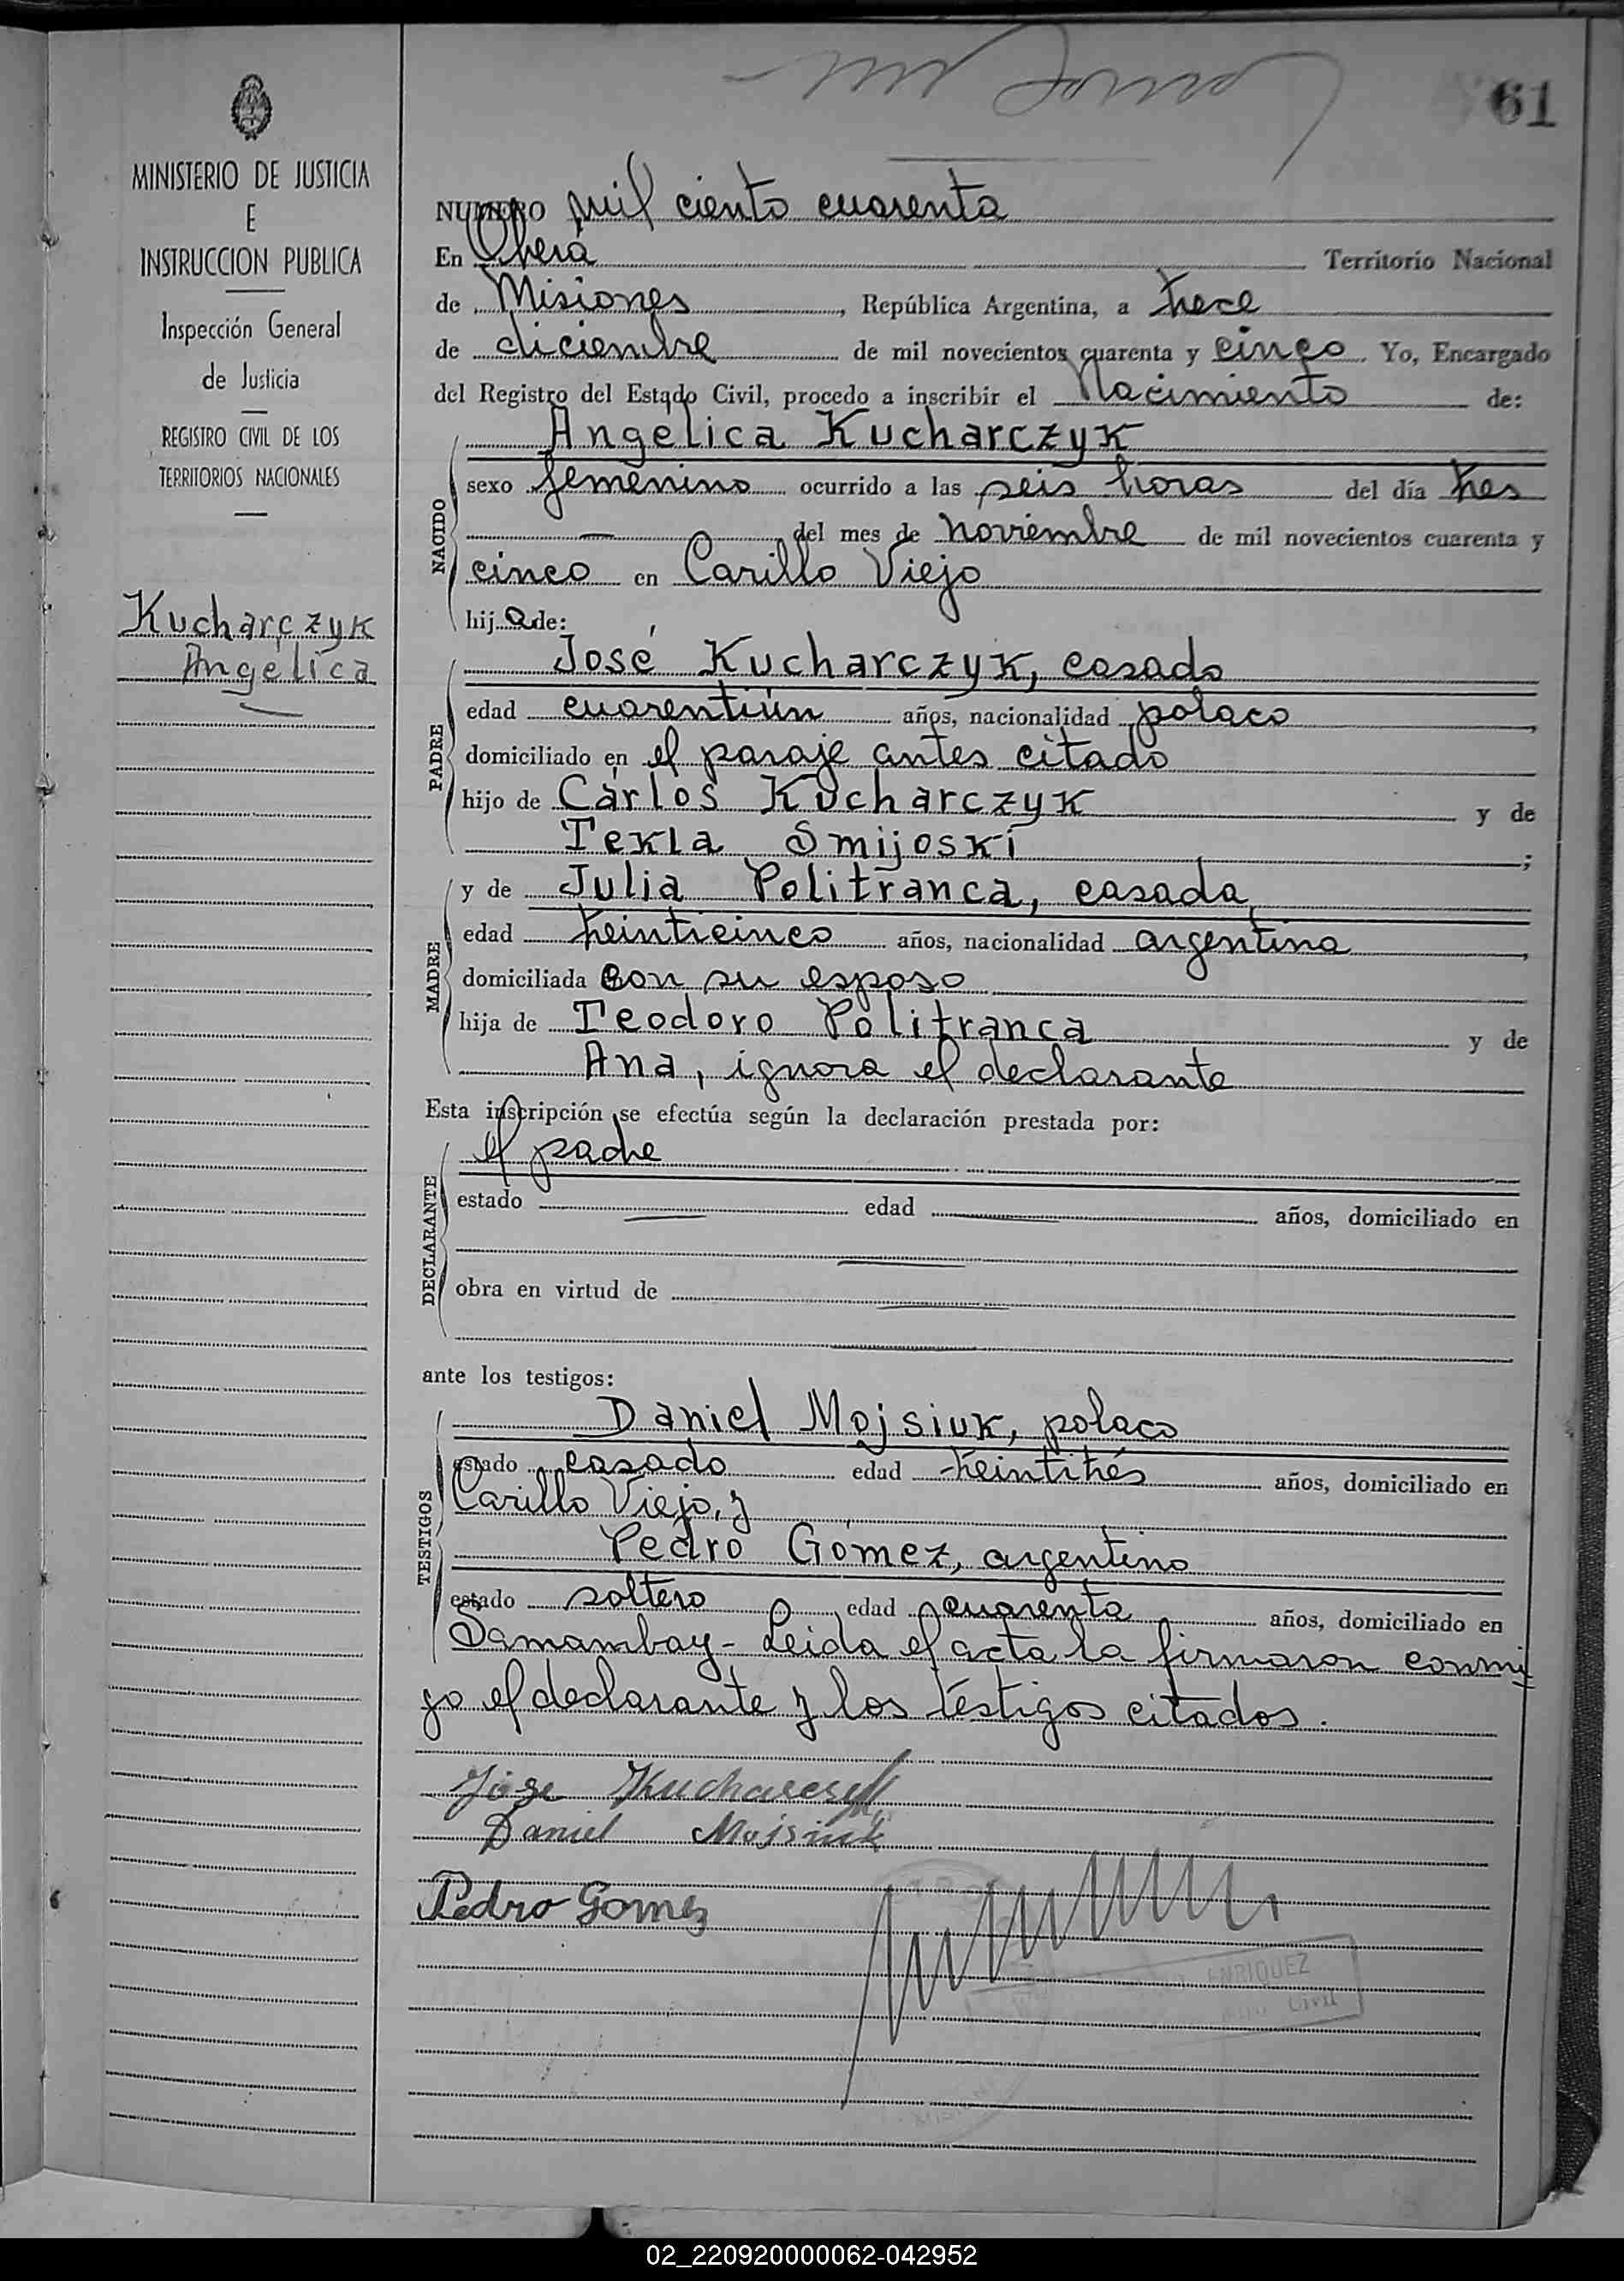 61
MINISTERIO DE JUSTICIA
E
INSTRUCCION PUBLICA
Inspección General
de Justicia
REGISTRO CIVIL DE LOS
TERRITORIOS NACIONALES
Kucharczyk
Angélica
NUMERO mil ciento cuarenta
En Oberá Territorio Nacional
de Misiones, República Argentina, a trece
de diciembre de mil novecientos cuarenta y cinco. Yo, Encargado
del Registro del Estado Civil, procedo a inscribir el Nacimiento de:
NACIDO
Angélica Kucharczyk
sexo femenino ocurrido a las seis horas del día tres
del mes de noviembre de mil novecientos cuarenta y
cinco en Carillo Viejo
hija de:
PADRE
José Kucharczyk, casado
edad cuarentiún años, nacionalidad polaco,
domiciliado en el paraje antes citado
hijo de Cárlos Kucharczyk y de
Tekla Smijoski;
MADRE
y de Julia Politranca, casada,
edad treinticinco años, nacionalidad argentina,
domiciliada con su esposo
hija de Teodoro Politranca y de
Ana, ignora el declarante
Esta inscripción se efectúa según la declaración prestada por:
DECLARANTE
el padre
estado edad años, domiciliado en
obra en virtud de
ante los testigos:
TESTIGOS
Daniel Mojsiuk, polaco
estado casado edad treintitrés años, domiciliado en
Carillo Viejo, y
Pedro Gómez, argentino
estado soltero edad cuarenta años, domiciliado en
Samambay- Leida el acta la firmaron conmi
go el declarante y los testigos citados.
Jose Kucharczyk
Daniel Mojsiuk
Pedro Gomez
ENRIQUEZ
Civil
02_220920000062-042952